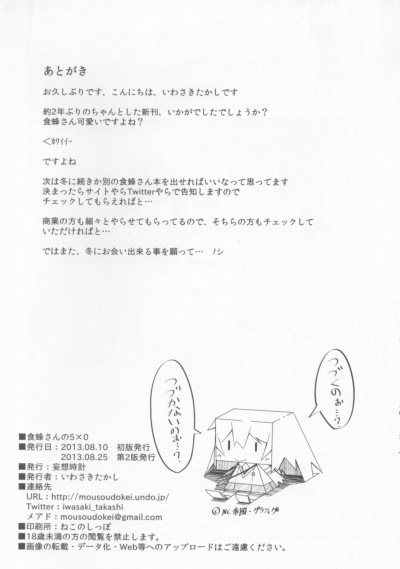 あとがき
お久しぶりです、こんにちは、いわさきたかしです
約2年ぶりのちゃんとした新刊、いかがでしたでしょうか？
食蜂さん可愛いですよね？
＜ｶﾜｲｲｰ
ですよね
次は冬に続きか別の食蜂さん本を出せればいいなって思ってます
決まったらサイトやらTwitterやらで告知しますので
チェックしてもらえればと…
商業の方も細々とやらせてもらってるので、そちらの方もチェックして
いただければと…
ではまた、冬にお会い出来る事を願って…　ノシ
つづくのぉ…？
つづかないのぉ…？
■食蜂さんの5×0
■発行日：2013.08.10　初版発行
2013.08.25　第2版発行
■発行：妄想時計
■発行者：いわさきたかし
■連絡先
URL：http://mousoudokei.undo.jp/
Twitter：iwasaki_takashi
メアド：mousoudokei@gmail.com
■印刷所：ねこのしっぽ
■18歳未満の方の閲覧を禁止します。
■画像の転載・データ化・Web等へのアップロードはご遠慮ください。